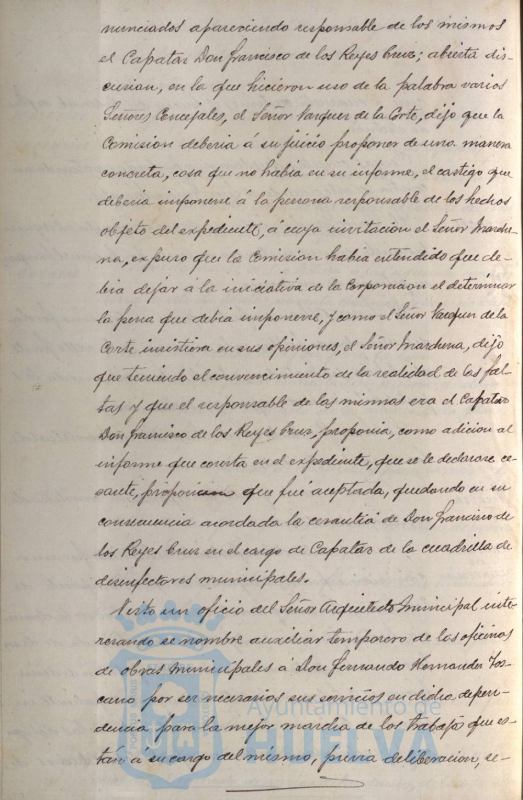 nunciados apareciendo responsable de los mismos
el Capataz Don Francisco de los Reyes Cruz; abierta dis-
cusion, en la que hicieron uso de la palabra varios
Señores Concejales, el Señor Vazquez de la Corte, dijo que la
Comision deberia á su juicio proponer de una manera
concreta, cosa que no habia en su informe, el castigo que
deberia imponerse á la persona responsable de los hechos
objeto del expediente, á cuya invitacion el Señor Marche-
na, expuso que la Comision habia entendido que de-
bia dejar á la iniciativa de la Corporacion el determinar
la pena que debia imponerse, y como el Señor Vazquez de la
Corte insistiera en sus opiniones, el Señor Marchena, dijo
que teniendo el convencimiento de la realidad de las fal-
tas y que el responsable de las mismas era el Capataz
Don Francisco de los Reyes Cruz, proponia, como adicion al
informe que consta en el expediente, que se le declarase ce-
sante, proposicion que fué aceptada, quedando en su
consecuencia acordada la cesantía de Don Francisco de
los Reyes Cruz en el cargo de Capataz de la cuadrilla de
desinfectores municipales.
Visto un oficio del Señor Arquitecto Municipal inte-
resando se nombre auxiliar temporero de las oficinas
de obras municipales á Don Fernando Hernandez Tos-
cano por ser necesarios sus servicios en dicha depen-
dencia para la mejor marcha de los trabajos que es-
tán á su cargo del mismo, previa deliberacion, se-
Ayuntamiento de
HUELVA